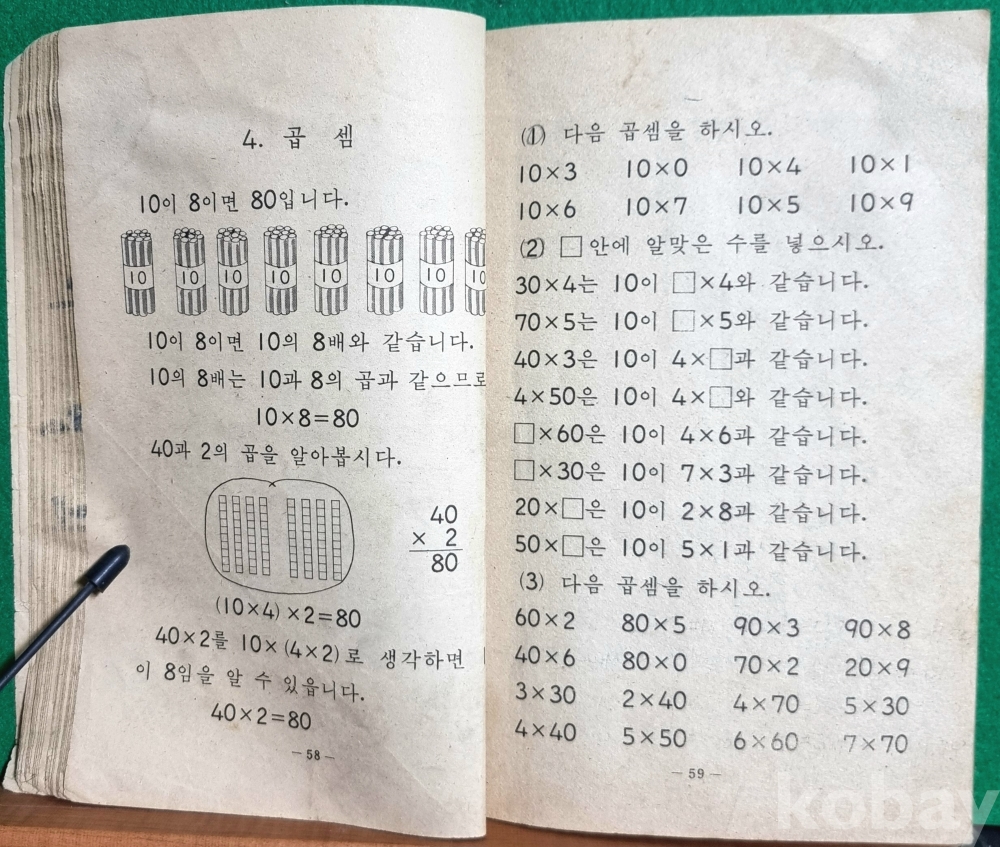 4. 곱 셈
10이 8이면 80입니다.
10 10 10 10 10 10 10 10
10이 8이면 10의 8배와 같습니다.
10의 8배는 10과 8의 곱과 같으므로
10×8=80
40과 2의 곱을 알아봅시다.
40
× 2
80
(10×4)×2=80
40×2를 10×(4×2)로 생각하면
이 8임을 알 수 있읍니다.
40×2=80
— 58 —
(1) 다음 곱셈을 하시오.
10×3 10×0 10×4 10×1
10×6 10×7 10×5 10×9
(2) □안에 알맞은 수를 넣으시오.
30×4는 10이 □×4와 같습니다.
70×5는 10이 □×5와 같습니다.
40×3은 10이 4×□과 같습니다.
4×50은 10이 4×□와 같습니다.
□×60은 10이 4×6과 같습니다.
□×30은 10이 7×3과 같습니다.
20×□은 10이 2×8과 같습니다.
50×□은 10이 5×1과 같습니다.
(3) 다음 곱셈을 하시오.
60×2 80×5 90×3 90×8
40×6 80×0 70×2 20×9
3×30 2×40 4×70 5×30
4×40 5×50 6×60 7×70
— 59 —
kobay